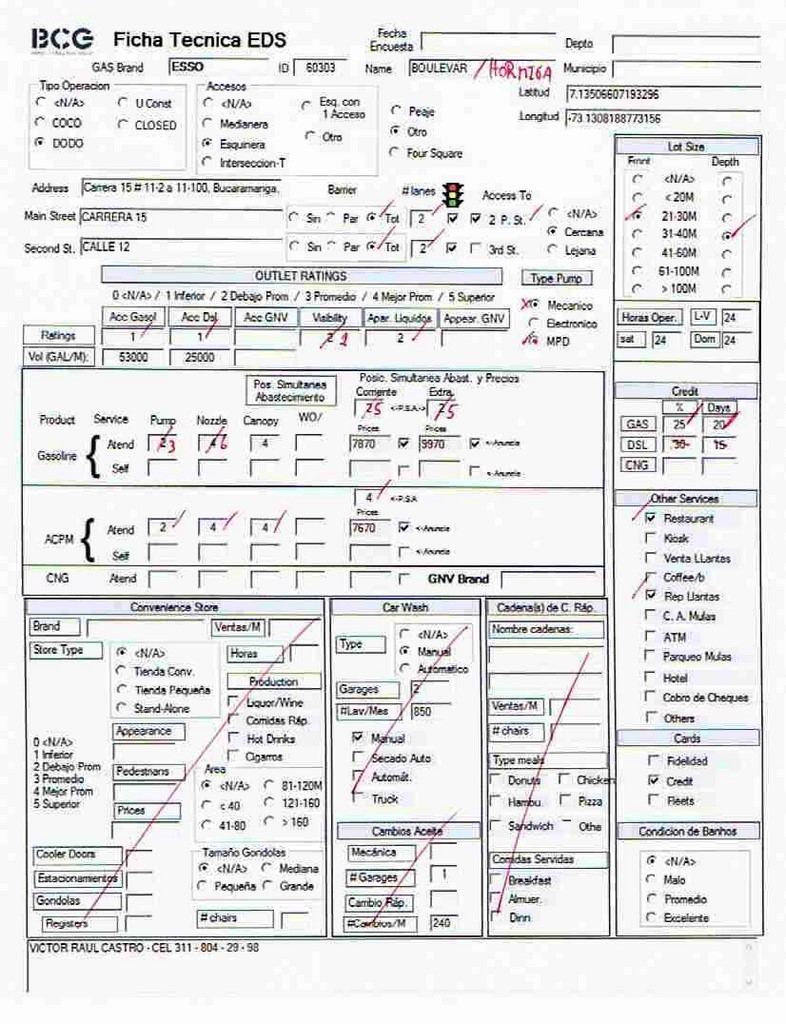 BCG Ficha Tecnica EDS Fecha Encuesta Depto
GAS Brand ESSO ID 60303 Name BOULEVAR / HORMIGA Municipio
Latitud 7.13506607193296
Longitud -73.1308188773156
Tipo Operacion
<N/A> U Const
COCO CLOSED
DODO
Accesos
<N/A> Esq. con 1 Acceso
Medianera Otro
Esquinera
Interseccion-T
Peaje
Otro
Four Square
Lot Size
Front Depth
<N/A>
< 20M
21-30M
31-40M
41-60M
61-100M
> 100M
Address Carrera 15 # 11-2 a 11-100, Bucaramanga, Barrier # lanes Access To
Main Street CARRERA 15 Sin Par Tot 2 2 P. St. <N/A>
Cercana
Second St. CALLE 12 Sin Par Tot 2 3rd St. Lejana
OUTLET RATINGS Type Pump
0 <N/A> / 1 Inferior / 2 Debajo Prom / 3 Promedio / 4 Mejor Prom / 5 Superior
Acc Gasol Acc Dsl Acc GNV Visibility Apar. Liquidos Appear. GNV
Ratings 1 1 2 1 2
Vol (GAL/M): 53000 25000
Mecanico
Electronico
MPD
Horas Oper. L-V 24
sat 24 Dom 24
Pos. Simultanea Abastecimiento Posic. Simultanea Abast. y Precios
Corriente Extra
75 <-P.S.A-> 75
Product Service Pump Nozzle Canopy WO/ Prices Prices
Gasoline Atend 2 3 4 6 4 7870 9970 <-Anuncia
Self <-Anuncia
4 <-P.S.A
Prices
ACPM Atend 2 4 4 7670 <-Anuncia
Self <-Anuncia
CNG Atend GNV Brand
Credit
% Days
GAS 25 20
DSL 30 15
CNG
Other Services
Restaurant
Kiosk
Venta LLantas
Coffee/b
Rep Llantas
C. A. Mulas
ATM
Parqueo Mulas
Hotel
Cobro de Cheques
Others
Cards
Fidelidad
Credit
Fleets
Condicion de Banhos
<N/A>
Malo
Promedio
Excelente
Convenience Store
Brand Ventas/M
Store Type <N/A> Horas
Tienda Conv.
Tienda Pequeña
Stand-Alone
Production
Liquor/Wine
Comidas Ráp.
Hot Drinks
Cigarros
0 <N/A>
1 Inferior
2 Debajo Prom
3 Promedio
4 Mejor Prom
5 Superior
Appearance
Pedestrians
Prices
Area
<N/A> 81-120M
< 40 121-160
41-80 > 160
Cooler Doors
Estacionamientos
Gondolas
Registers
Tamaño Gondolas
<N/A> Mediana
Pequeña Grande
# chairs
Car Wash
Type <N/A>
Manual
Automatico
Garages 2
#Lav/Mes 850
Manual
Secado Auto
Automát.
Truck
Cambios Aceite
Mecánica
# Garages 1
Cambio Ráp.
#Cambios/M 240
Cadena(s) de C. Ráp.
Nombre cadenas:
Ventas/M
# chairs
Type meals
Donuts Chicken
Hambu. Pizza
Sandwich Othe
Comidas Servidas
Breakfast
Almuer.
Dinn
VICTOR RAUL CASTRO - CEL 311 - 804 - 29 - 98